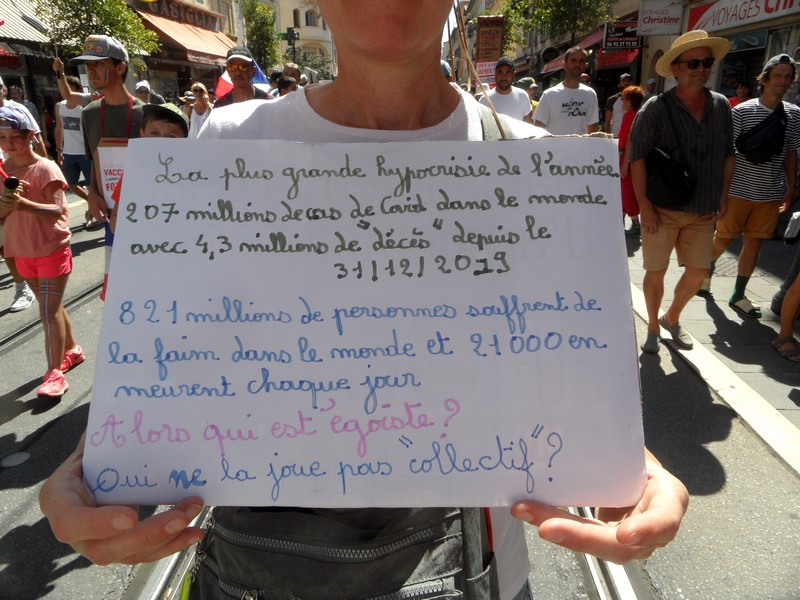 La plus grande hypocrisie de l'année
207 millions de cas de Covid dans le monde
avec 4,3 millions de "décès" depuis le
31/12/2019
821 millions de personnes souffrent de
la faim dans le monde et 21000 en
meurent chaque jour
Alors qui est égoïste?
Qui ne la joue pas "collectif"?
VOYAGES
Christine
VOYAGES CHRISTINE